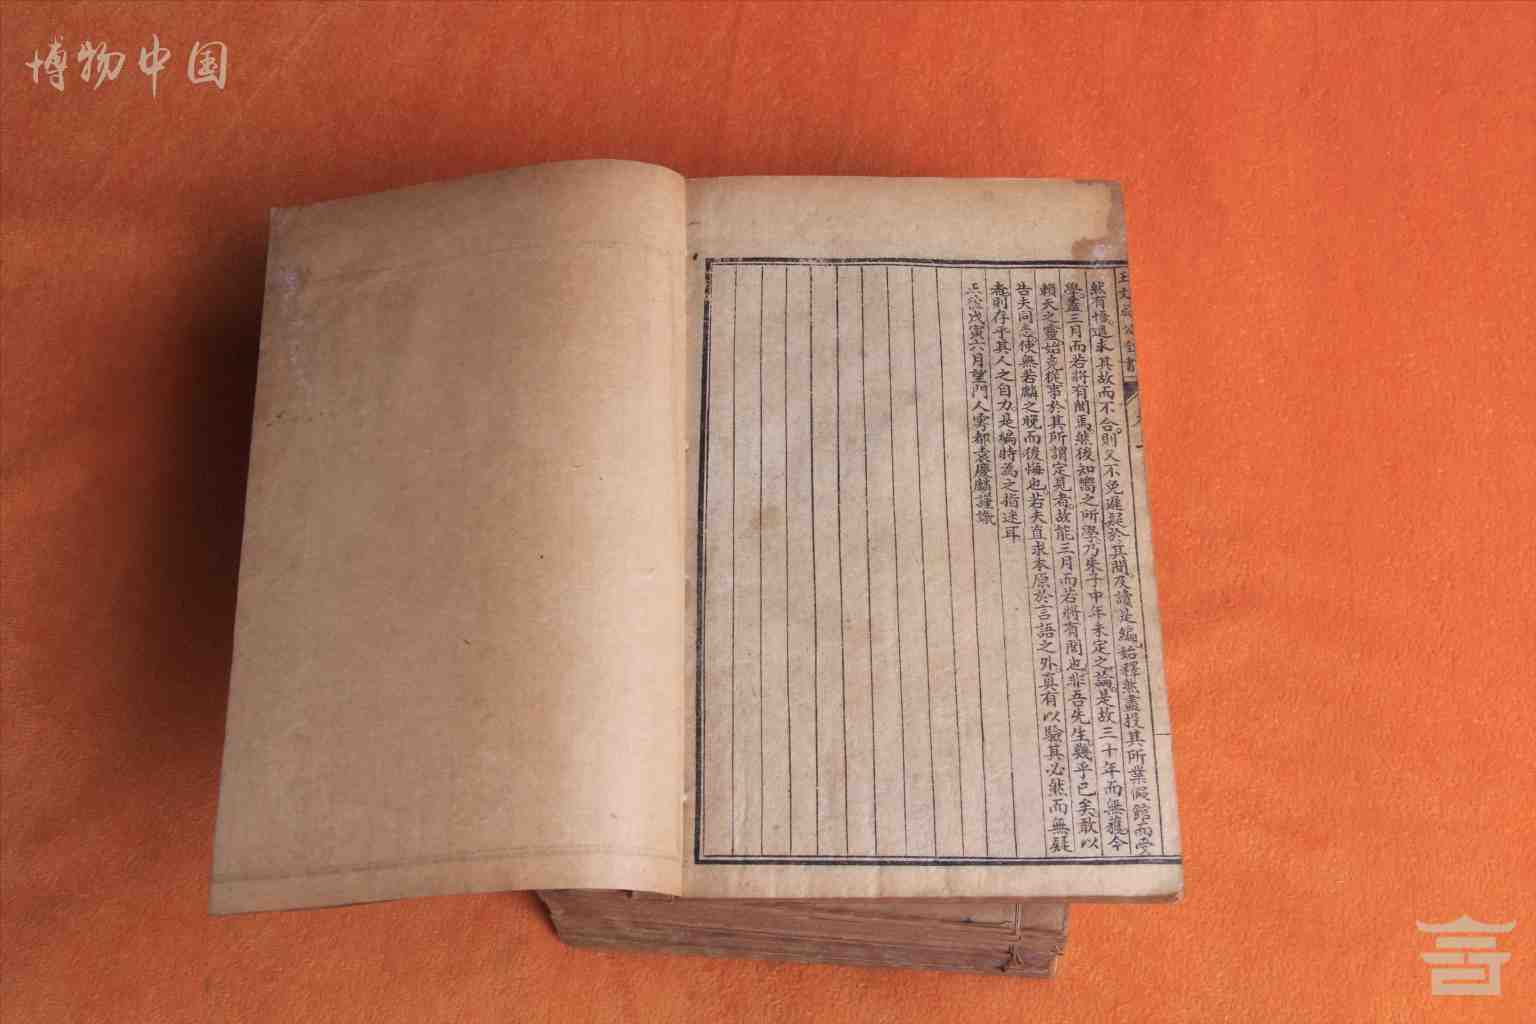 博物中国
王文成公全書
然有悵退求其故而不合則又不免遲疑於其間及讀是編始釋然盡投其所業假館而受
學蓋三月而若將有聞焉然後知嚮之所學乃朱子中年未定之論是故三十年而無獲今
賴天之靈始克從事於其所謂定見者故能三月而若將有聞也非吾先生幾乎已矣敢以
告夫同志使無若麟之晚而後悔也若夫直求本原於言語之外真有以驗其必然而無疑
者則存乎其人之自力是編特為之指迷耳
正德戊寅六月望門人雩都袁慶麟謹識